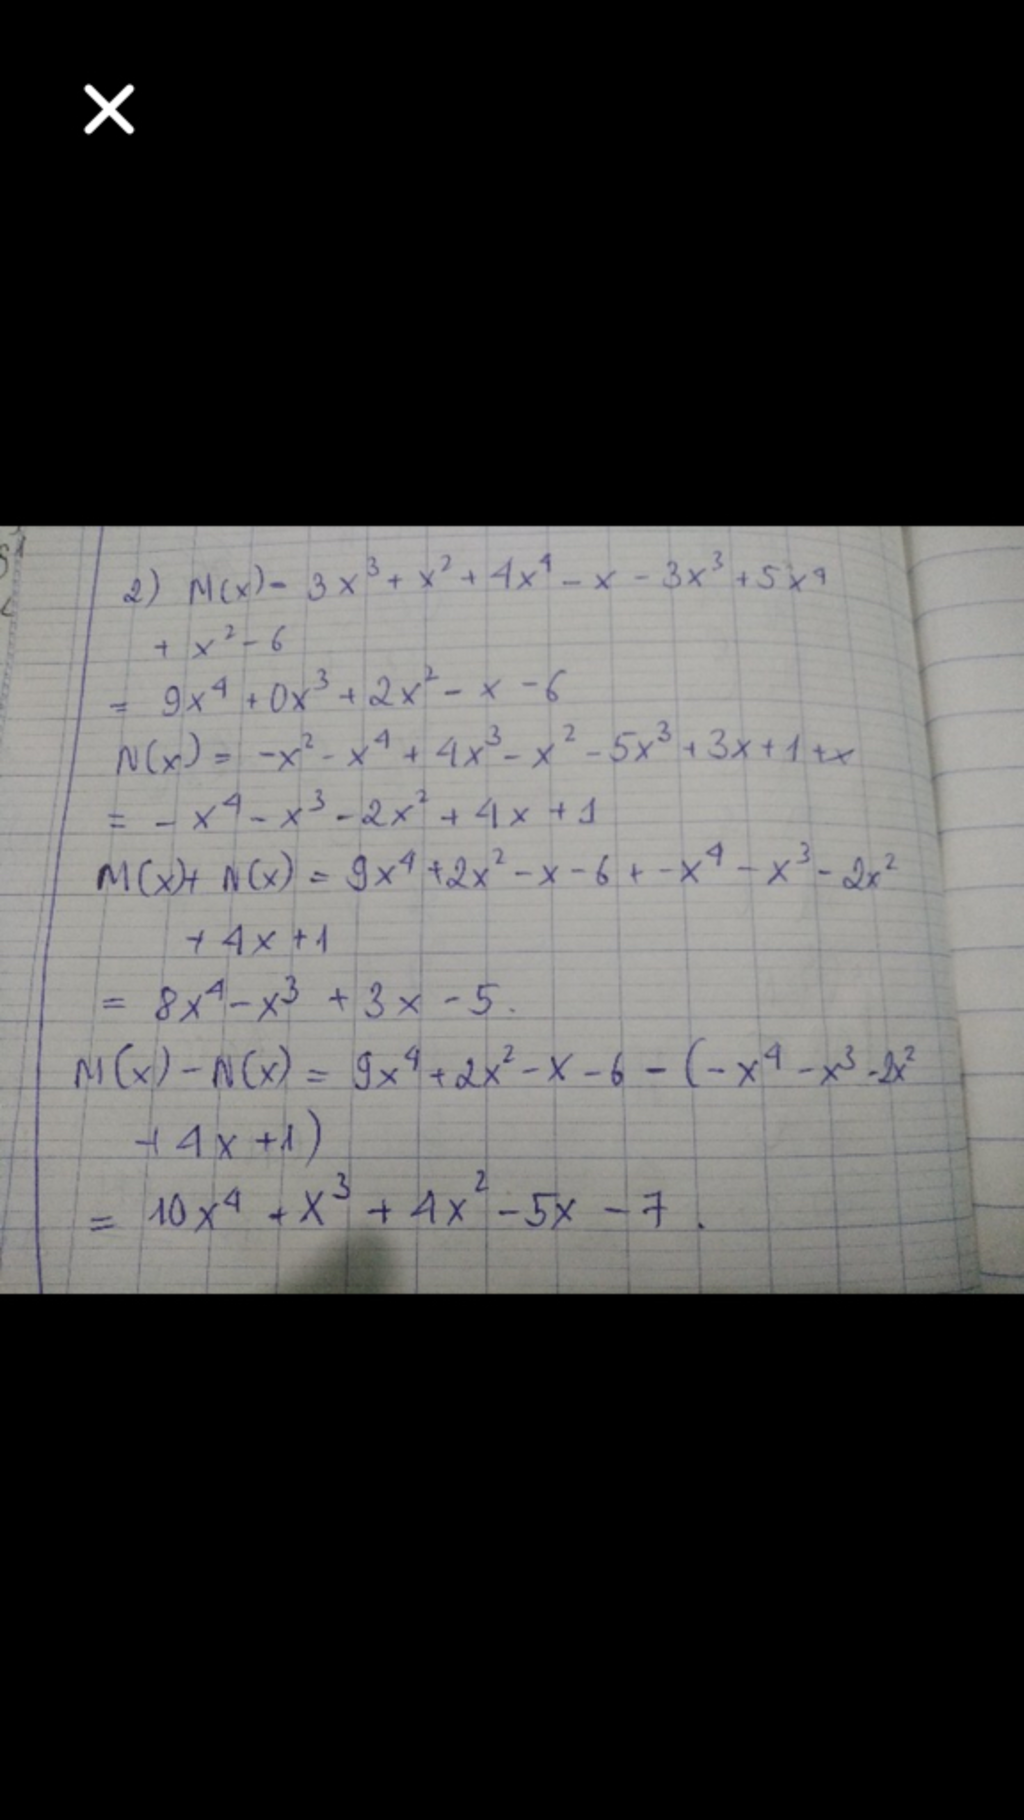 2) M(x) = 3x³ + x² + 4x⁴ - x - 3x³ + 5x⁴
+ x² - 6
= 9x⁴ + 0x³ + 2x² - x - 6
N(x) = -x² - x⁴ + 4x³ - x² - 5x³ + 3x + 1 + x
= - x⁴ - x³ - 2x² + 4x + 1
M(x) + N(x) = 9x⁴ + 2x² - x - 6 + -x⁴ - x³ - 2x²
+ 4x + 1
= 8x⁴ - x³ + 3x - 5.
M(x) - N(x) = 9x⁴ + 2x² - x - 6 - (-x⁴ - x³ - 2x²
+ 4x + 1)
= 10x⁴ + x³ + 4x² - 5x - 7.